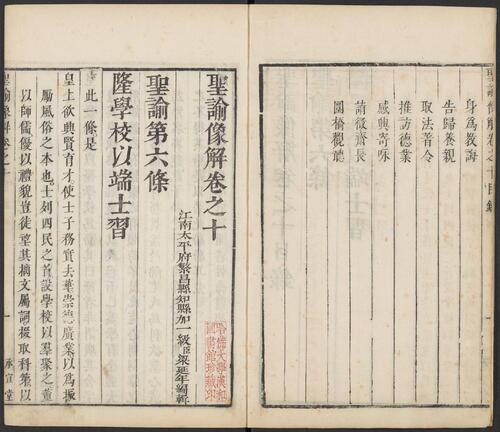 身爲教誨
告歸養親
取法晉令
推訪德業
感興寄咏
請徵齋長
圜橋觀聽
聖諭像解卷之十目錄
聖諭像解卷之十
江南太平府繁昌縣知縣加一級臣梁延年編輯
哈佛大學漢和圖書館珍藏印
聖諭第六條
隆學校以端士習
此一條是
皇上欲興賢育才使士子務實去華崇德廣業以爲振
勵風俗之本也士列四民之首設學校以羣聚之董
以師儒優以禮貌豈徒望其摛文屬詞掇取科第以
聖諭像解卷之十
一
承宣堂